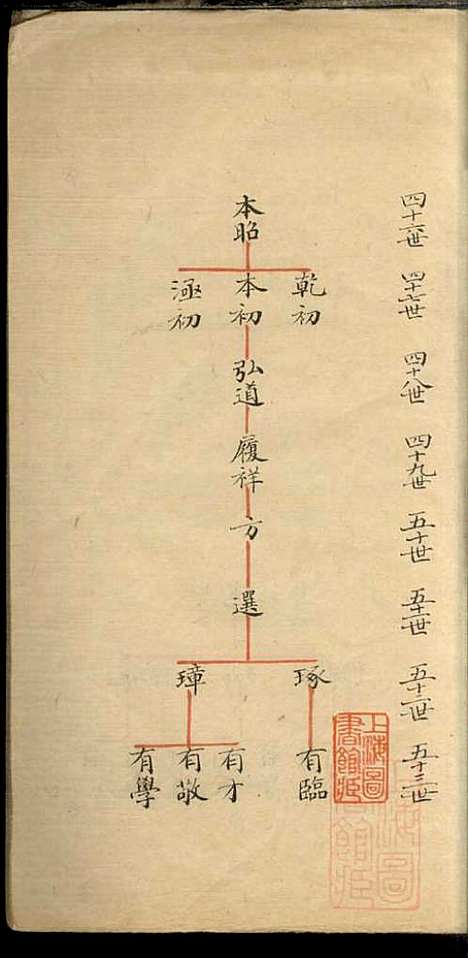 四十六世 四十七世 四十八世 四十九世 五十世 五十一世 五十二世 五十三世
本昭
乾初
本初
滙初
弘道
履祥
方
選
琢
璋
有臨
有才
有敬
有學
上海圖
書館藏